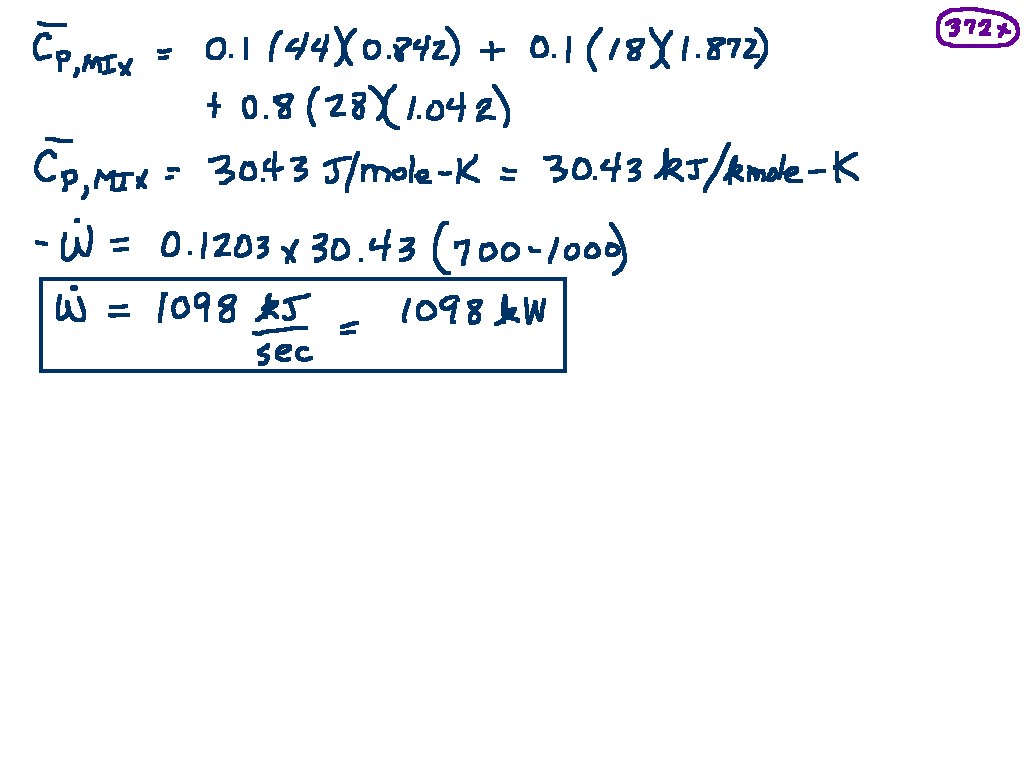 372x
C̅P,MIX = 0.1 (44)(0.842) + 0.1 (18)(1.872)
+ 0.8 (28)(1.042)
C̅P,MIX = 30.43 J/mole-K = 30.43 kJ/kmole-K
-Ẇ = 0.1203 x 30.43 (700-1000)
Ẇ = 1098 kJ/sec = 1098 kW